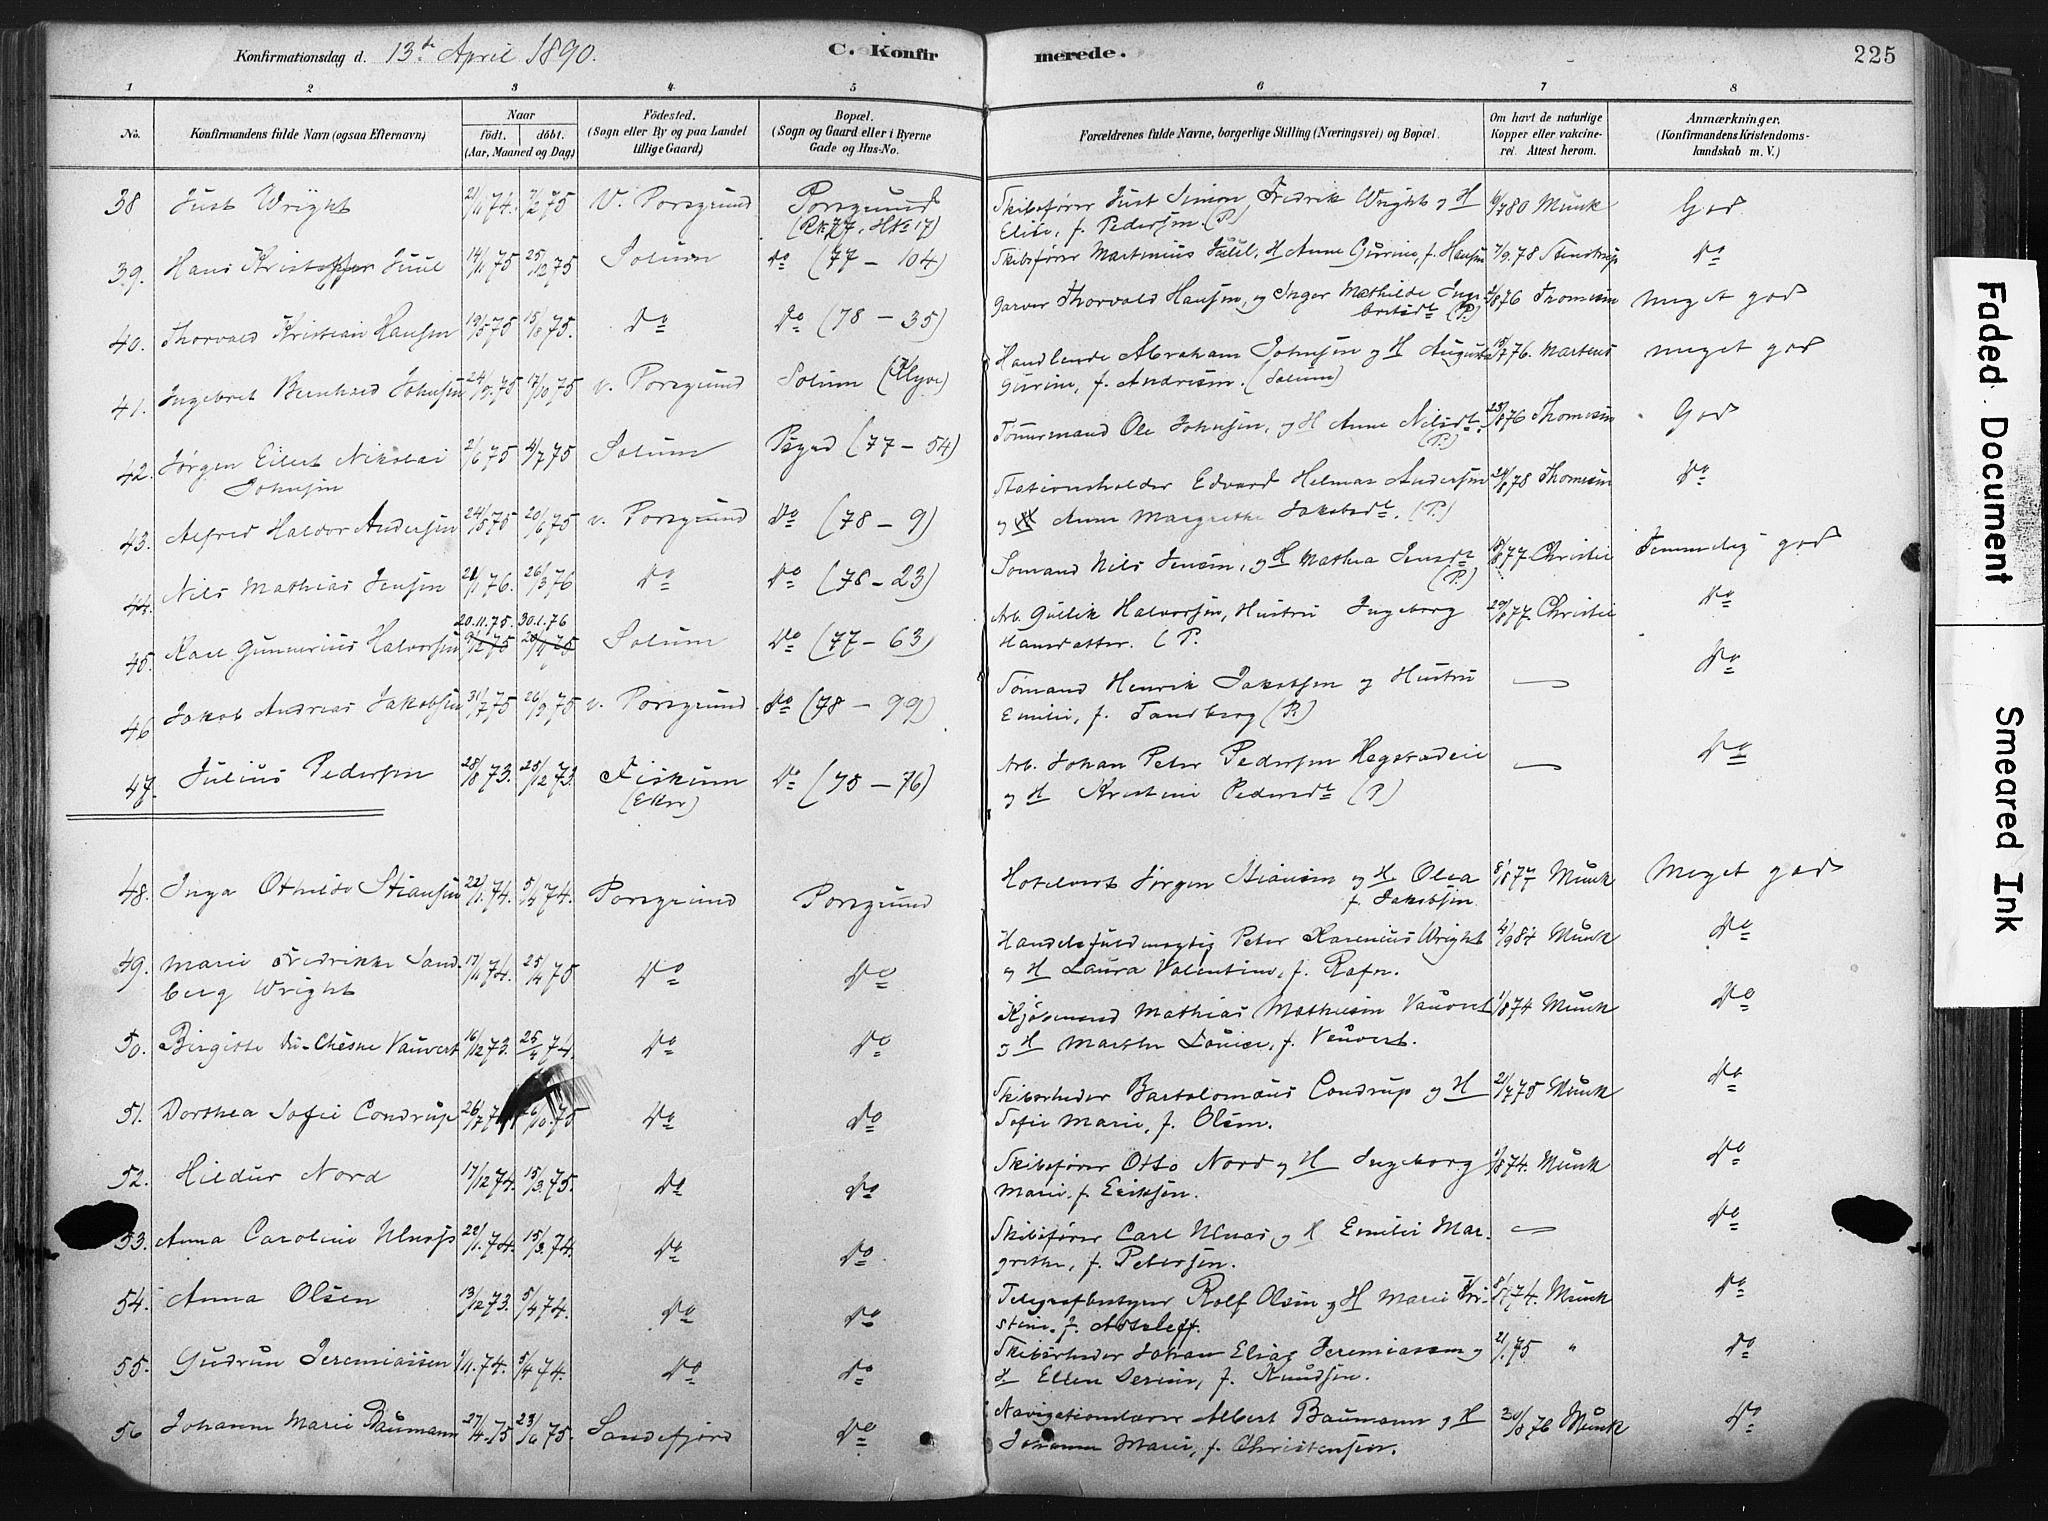 Konfirmationsdag d. 13de April 1890.
C. Konfirmerede.
225
1 2 3 4 5 6 7 8
No.
Konfirmandens fulde Navn (ogsaa Efternavn)
Naar
födt. döbt.
(Aar, Maaned og Dag)
Födested.
(Sogn eller By og paa Landet
tillige Gaard)
Bopæl.
(Sogn og Gaard eller i Byerne
Gade og Hus-No.
Forældrenes fulde Navne, borgerlige Stilling (Næringsvei) og Bopæl.
Om havt de naturlige
Kopper eller vakcine-
rei. Attest herom.
Anmærkninger.
(Konfirmandens Kristendoms-
kundskab m. V.)
38 Just Wright 21/11 74. 7/2 75 V. Porsgrund Porsgrund Skibsfører Just Simon Fredrik Wright og H 80 Munk God
Elise, f. Pedersen. (P.)
39. Hans Kristoffer Juul 14/1 75 25/12 75 Solum Do (77 – 104) Skibsfører Martinius Juul, H Anne Gurine, f. Hansen 7/9.78 Stenstrup Do
40. Thorvald Kristian Hansen 19/5 75 15/8 75. Do Do (78 – 35) Garver Thorvald Hansen, og Inger Mathilde Inge-
britsdt (P.) 76 Thomesen meget god
41. Ingebret Bernhard Johnsen 24/9.75 17/10 75 v. Porsgrund Solum (Klyve) Handlende Abraham Johnsen og H Augusta 15/7 76. Martens meget god
Gurine, f. Andresen. (Solum)
42. Jørgen Eilert Nikolai 2/6 75 4/7 75 Solum Psgrd (77 – 54) Tømmermand Ole Johnsen, og H Anne Nilsdt. 23/8 76 Thomesen God
Johnsen (P.)
43. Alfred Halvor Andersen 24/5 75 20/6 75 v. Porsgrund Do (78 – 9) Stationsholder Edvard Helmar Andersen 78 Thomesen Do
og H Anne Margrethe Jakobsdt. (P.)
44. Nils Mathias Jensen 21/1 76. 26/3 76 Do Do (78 – 23) Sømand Nils Jensen, og H Mathea Jensdt 77 Christie Temmelig god
(P.)
20.11.75. 30.1.76
45. Karl Gunnerius Halvorsen 9/12 75 Solum Do (77 – 63) Arb. Gullik Halvorsen, Hustru Ingeborg 29/8 77. Christie Do
Hansdatter. (P.
46 Jakob Andreas Jakobsen 31/7 75 26/9 75 v. Porsgrund Do (78 – 99) Sømand Henrik Jakobsen og Hustru — Do
Emilie, f. Tandberg (P.)
47. Julius Pedersen 28/8 73. 25/12 73. Fiskum Do (75 – 76) Arb. Johan Peter Pedersen Hegstadeie — Do
(Eker) og H Kristine Pedersdt (P.)
48. Inga Othilde Stiansen 22/1.74. 5/4 74. Porsgrund Porsgrund Hotelvert Jørgen Stiansen og H. Olea 8/8 77 Munk Meget god
f. Jakobsen
49. Marie Fredrikke Sand- 17/11 74. 25/4 75 Do Do Handelsfuldmægtig Peter Karenius Wright 4/9 84 Munk Do
berg Wright og H Laura Valentine, f. Rafn.
50. Birgitte du-Chesne Vauvert 16/12 73. 25/4 74. Do Do Kjøbmand Mathias Mathiesen Vauvert 1/8 74 Munk Do
og H Marthe Louise, f. Vauvert.
51. Dorthea Sofie Condrup 26/7 7 /10.75 Do Do Skibsrheder Bartolomæus Condrup og H 21/7 75 Munk Do
Sofie Marie, f. Olsen.
52. Hildur Nord 17/12 74. 15/3.75. Do Do Skibsfører Otto Nord og H Ingeborg 74. Munk Do
Marie, f. Eriksen.
53. Anna Caroline 22/1.74. 15/3.74. Do Do Skibsfører Carl og H Emilie Mar- — Do
grethe, f. Petersen.
54. Anna Olsen 13/12 73. 5/4 74. Do Do Telegrafbestyrer Rolf Olsen og H Marie Kri- 74. Munk Do
stine. f.
55. Gudrun Jeremiassen 1/1.74. 5/4 74. Do Do Skibsrheder Johan Elias Jeremiassen og 75 " Do
H. Ellen Serine, f. Knudsen.
56 Johanne Marie Baumann 27/4.75 23/6 75. Sandefjord Do Navigationslærer Albert Baumann og H 30/8 76 Munk Do
Johanne Marie, f. Christensen.
Faded Document Smeared Ink